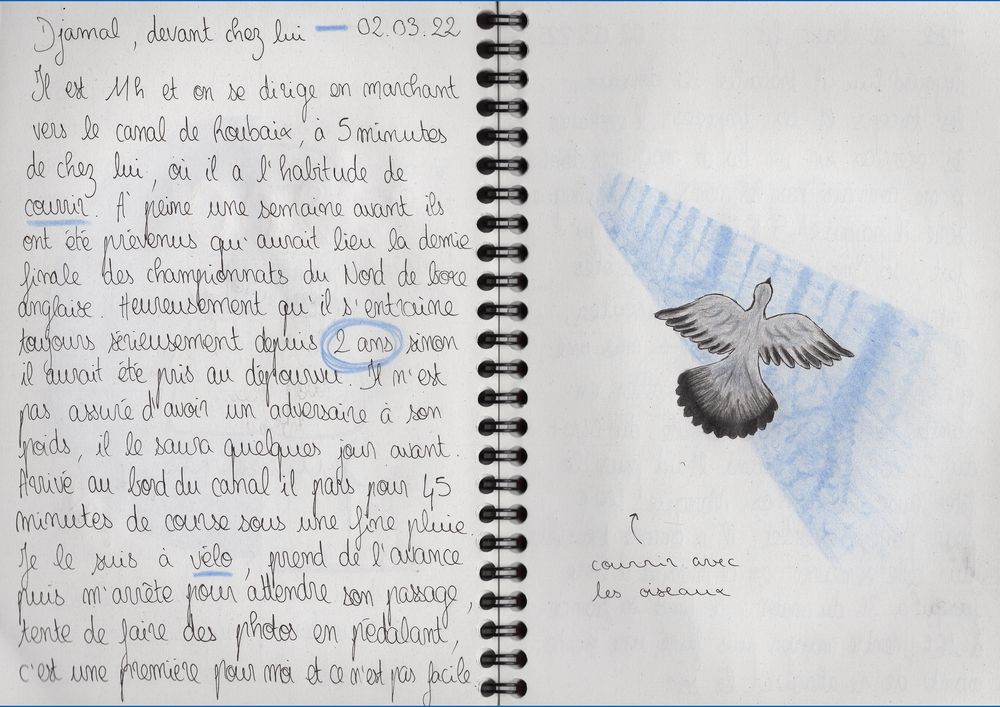 Djamal, devant chez lui — 02.03.22
Il est 11h et on se dirige en marchant
vers le canal de Roubaix, à 5 minutes
de chez lui, où il a l'habitude de
courir. À peine une semaine avant ils
ont été prévenus qu'aurait lieu la demie
finale des championnats du Nord de boxe
anglaise. Heureusement qu'il s'entraine
toujours sérieusement depuis 2 ans sinon
il aurait été pris au dépourvu. Il n'est
pas assuré d'avoir un adversaire à son
poids, il le saura quelques jour avant.
Arrivé au bord du canal il pars pour 45
minutes de course sous une fine pluie.
Je le suis à vélo, prend de l'avance
puis m'arrête pour attendre son passage,
tente de faire des photos en pédalant,
c'est une première pour moi et ce n'est pas facile.
courrir avec
les oiseaux